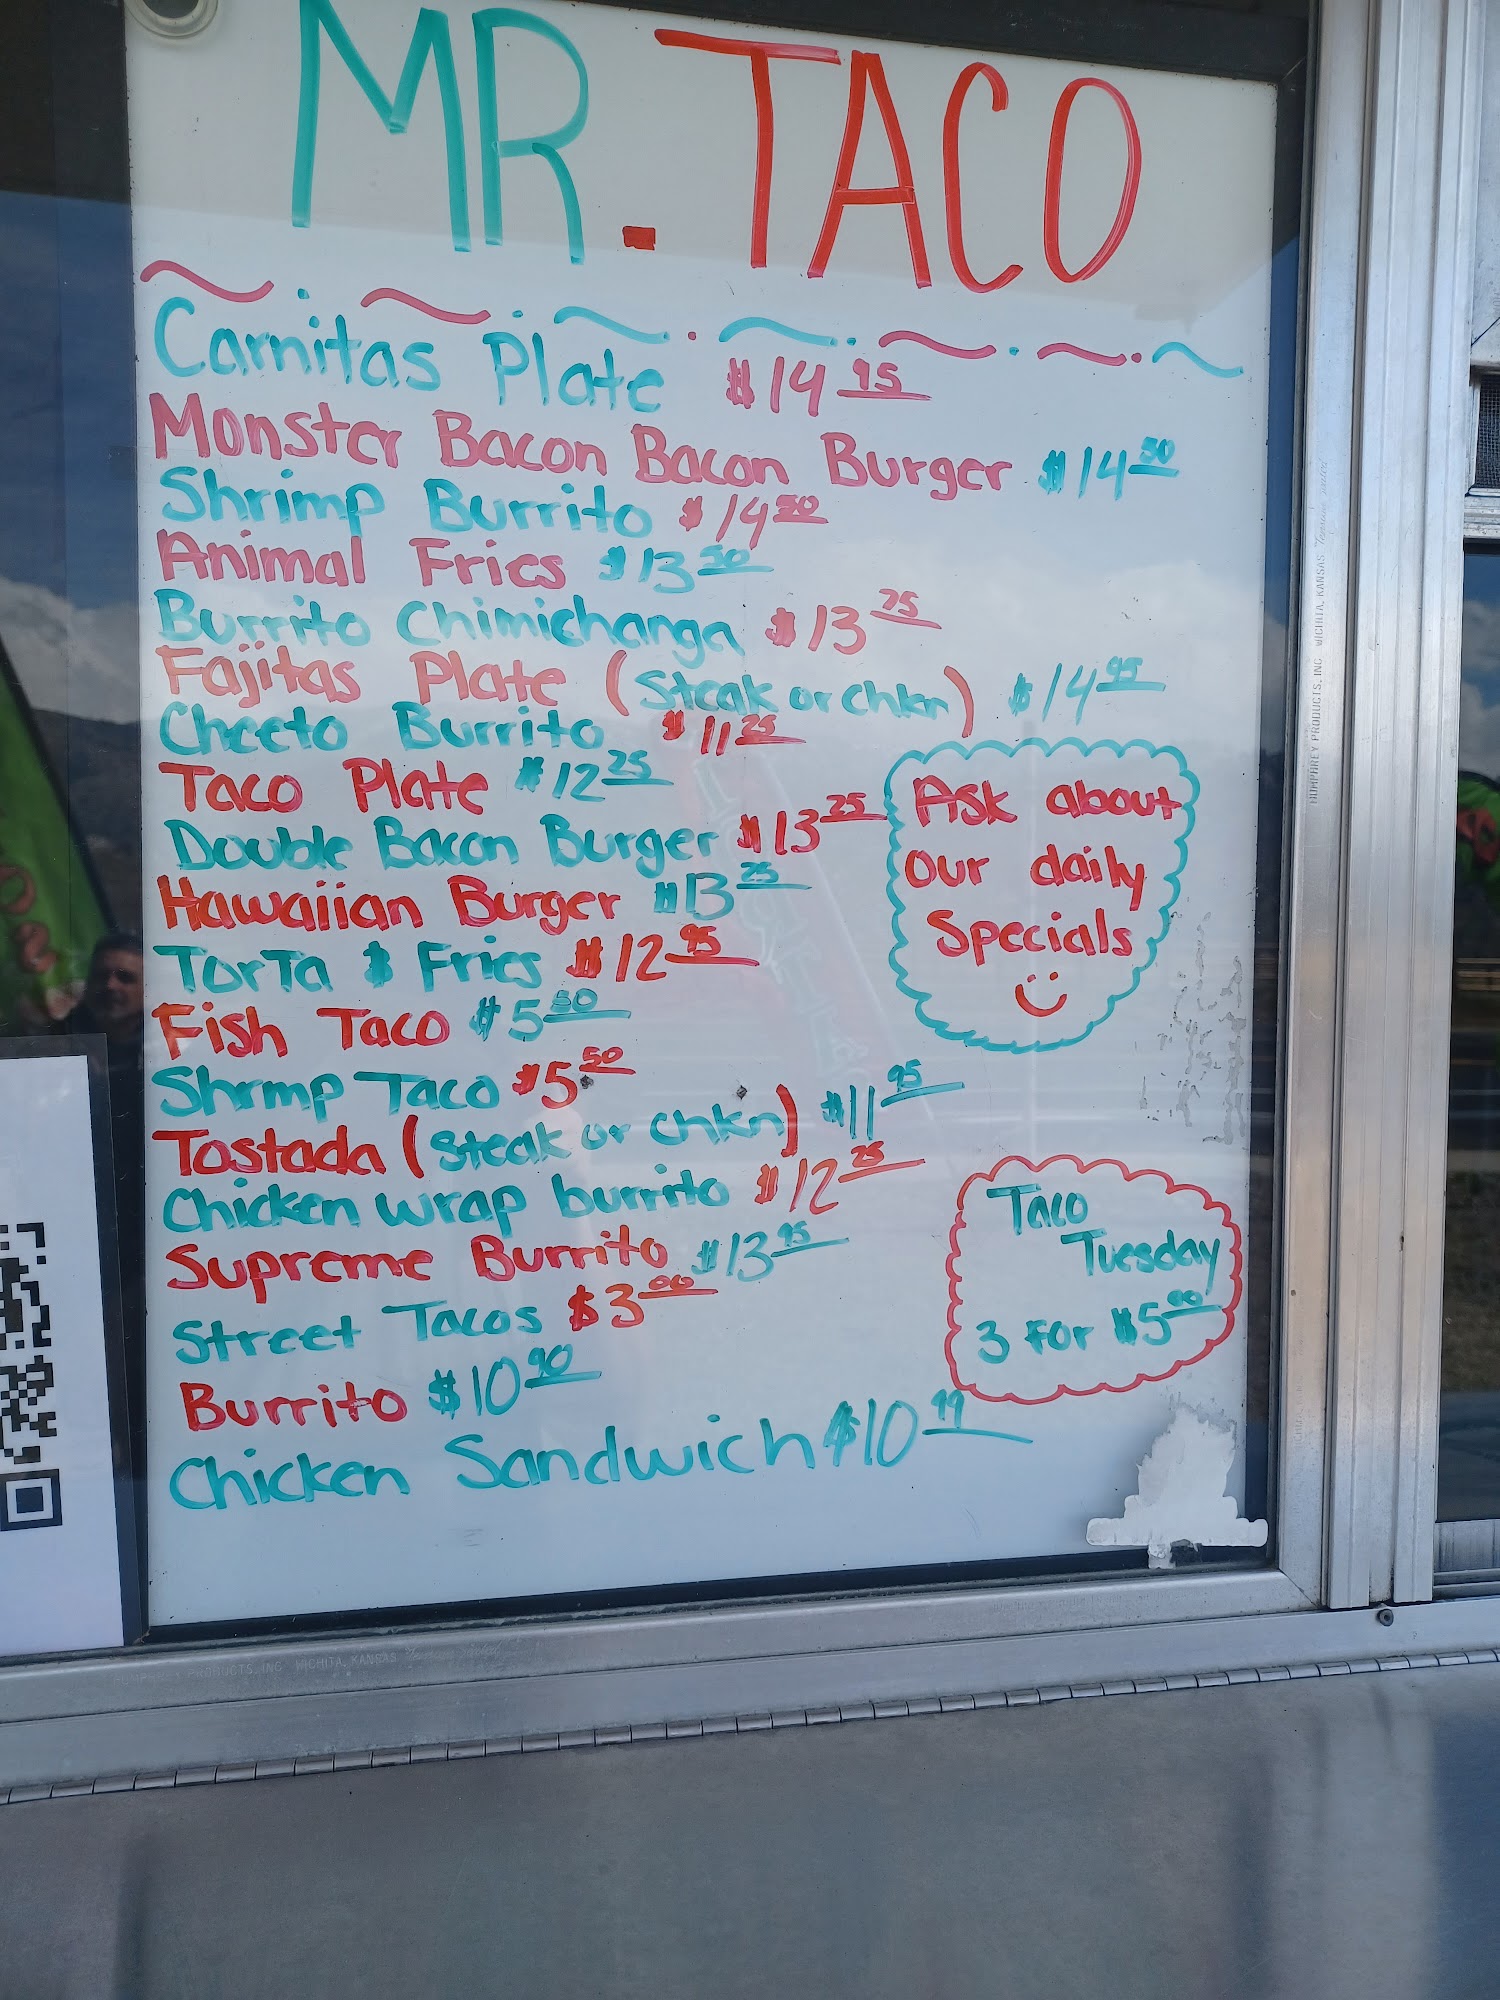 MR. TACO
Carnitas Plate $14 95
Monster Bacon Bacon Burger $14 50
Shrimp Burrito $14 50
Animal Fries $13 50
Burrito Chimichanga $13 75
Fajitas Plate (Steak or chkn) $14 95
Cheeto Burrito $11 25
Taco Plate $12 25
Double Bacon Burger $13 25
Hawaiian Burger $13 25
Torta & Fries $12 95
Fish Taco $5 50
Shrmp Taco $5 50
Tostada (Steak or chkn) $11 95
Chicken wrap burrito $12 25
Supreme Burrito $13 95
Street Tacos $3 00
Burrito $10 90
Chicken Sandwich $10 99
Ask about
our daily
Specials
Taco
Tuesday
3 For $5 00
HUMPHREY PRODUCTS, INC WICHITA, KANSAS
PRODUCTS, INC WICHITA, KANSAS